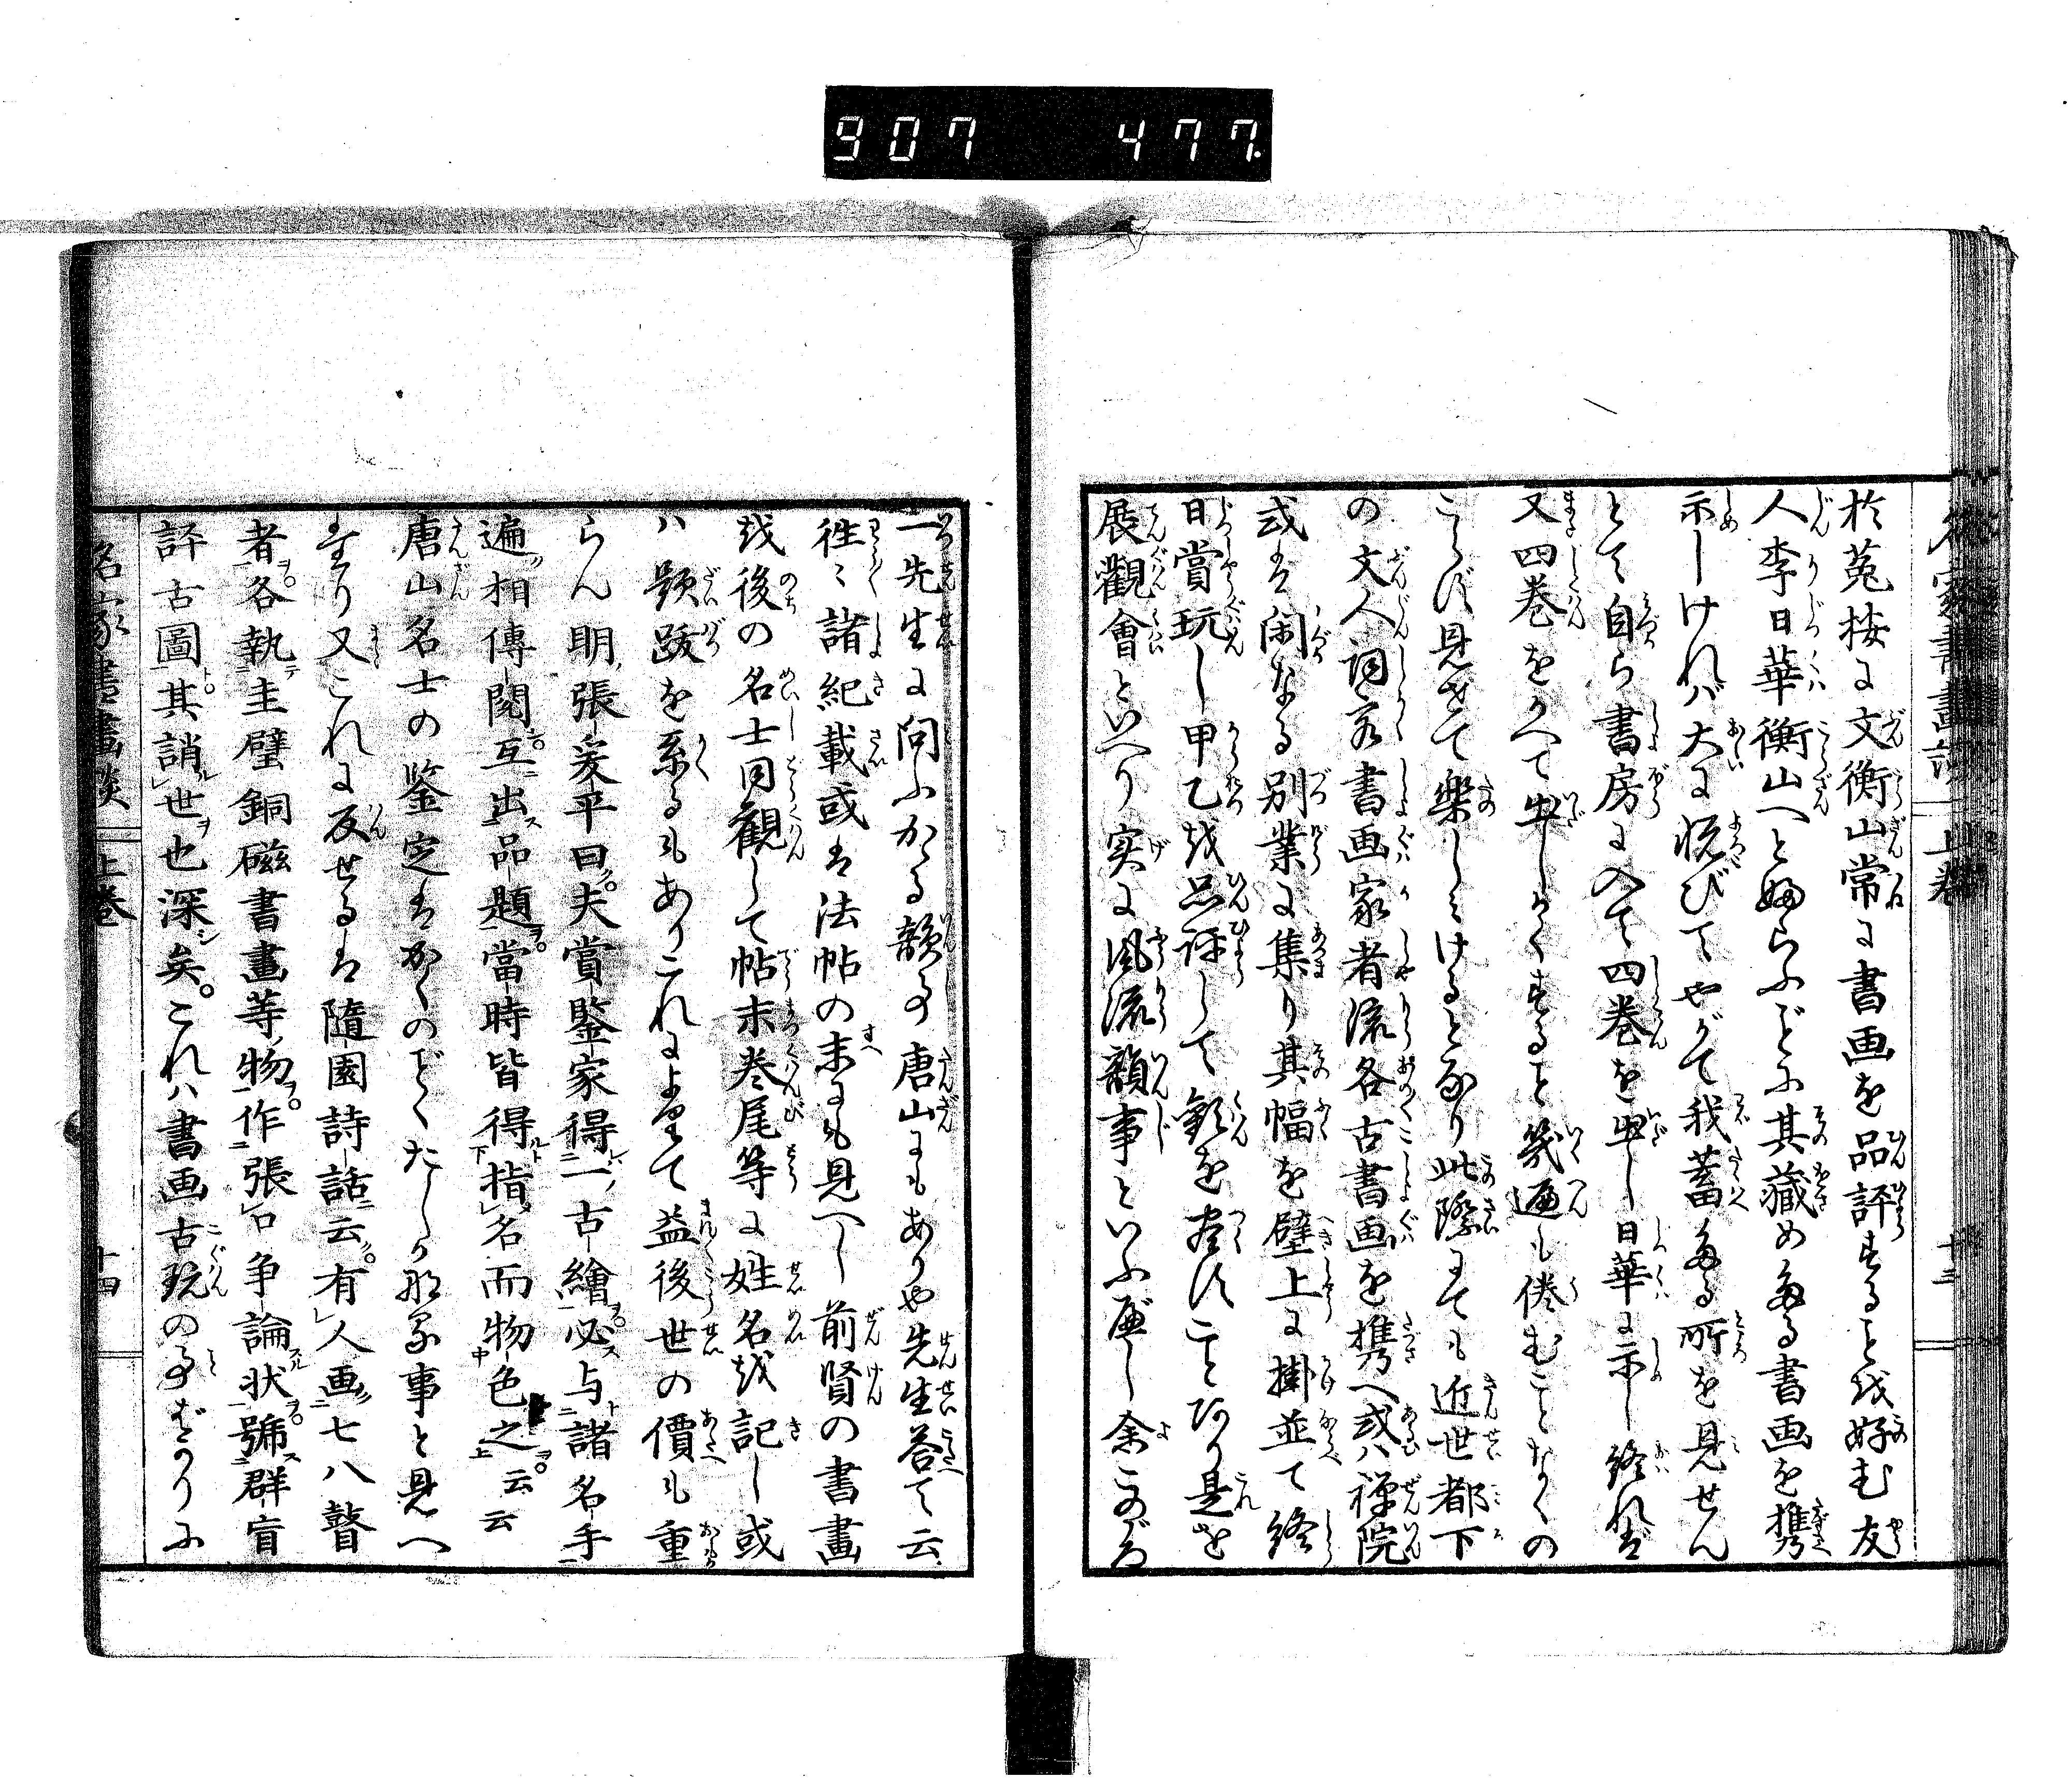 907 477
於菟楼に文衡山常に書画を品評することを好む友
人李日華衡山へとぶらふごとに其蔵めある書画を携
示しければ大に悦びてやがて我蓄ある所を見せん
とて自ら書房に入て四巻を出し日華に示し終れば
又四巻をかへて出しかくすること幾遍も倦むことなくの
こらず見せて楽しみけるとなり此際にても近世都下
の文人詞客書画家者流各古書画を携へ或ハ禅院
或は閑なる別業に集り其幅を壁上に掛並て終
日賞玩し甲乙を品評して歓を尽すことあり是を
展観會といへり実に風流韻事といふべし余このごろ
一先生に問ふかゝる韻事唐山にもありや先生答て云
往々諸紀載或は法帖の末にも見へし前賢の書畫
を後の名士同觀して帖末巻尾等に姓名を記し或
ハ題跋を系るもありこれによりて益後世の價も重
らん明張爰平曰夫賞鑒家得一古繪必与諸名手
遍相傳閲互出品題當時皆得指名而物色之云云
唐山名士の鑒定はかくのごとくたしかなる事と見へ
たり又これに反せるは隨園詩話云有人画七八瞽
者各執圭璧銅磁書畫等物作張口争論状號群盲
評古圖其誚世也深矣。これハ書画古玩の事ばかりに
名家書畫談 上巻 十四